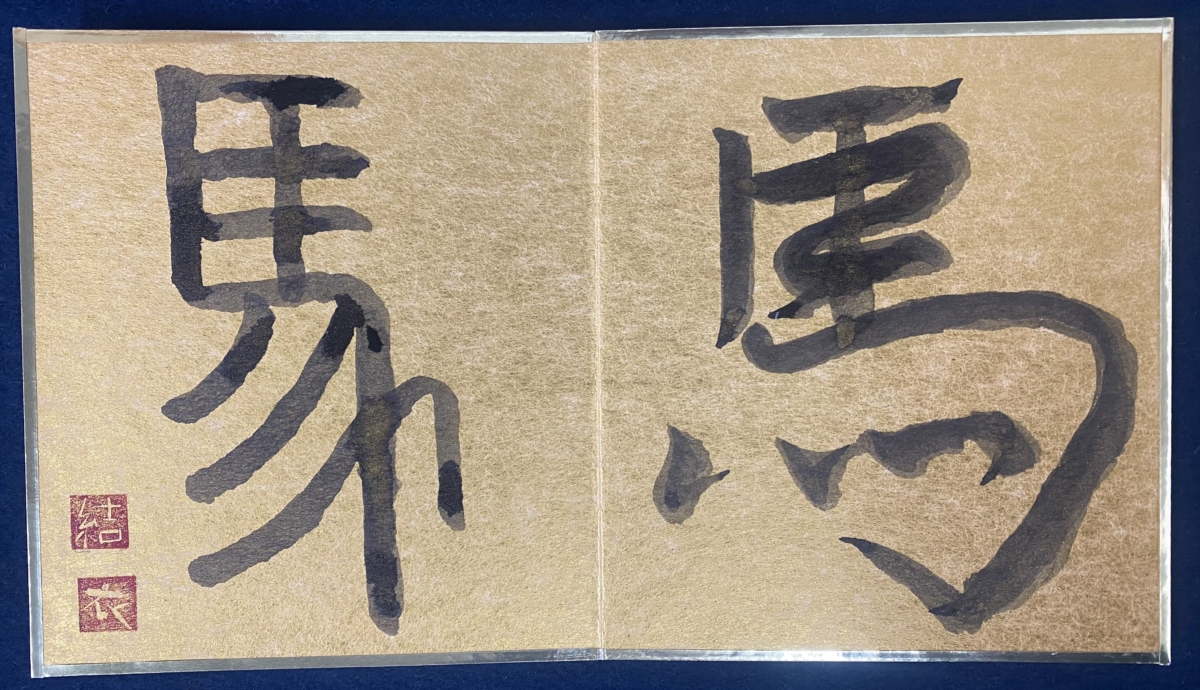 馬
馬
結
衣